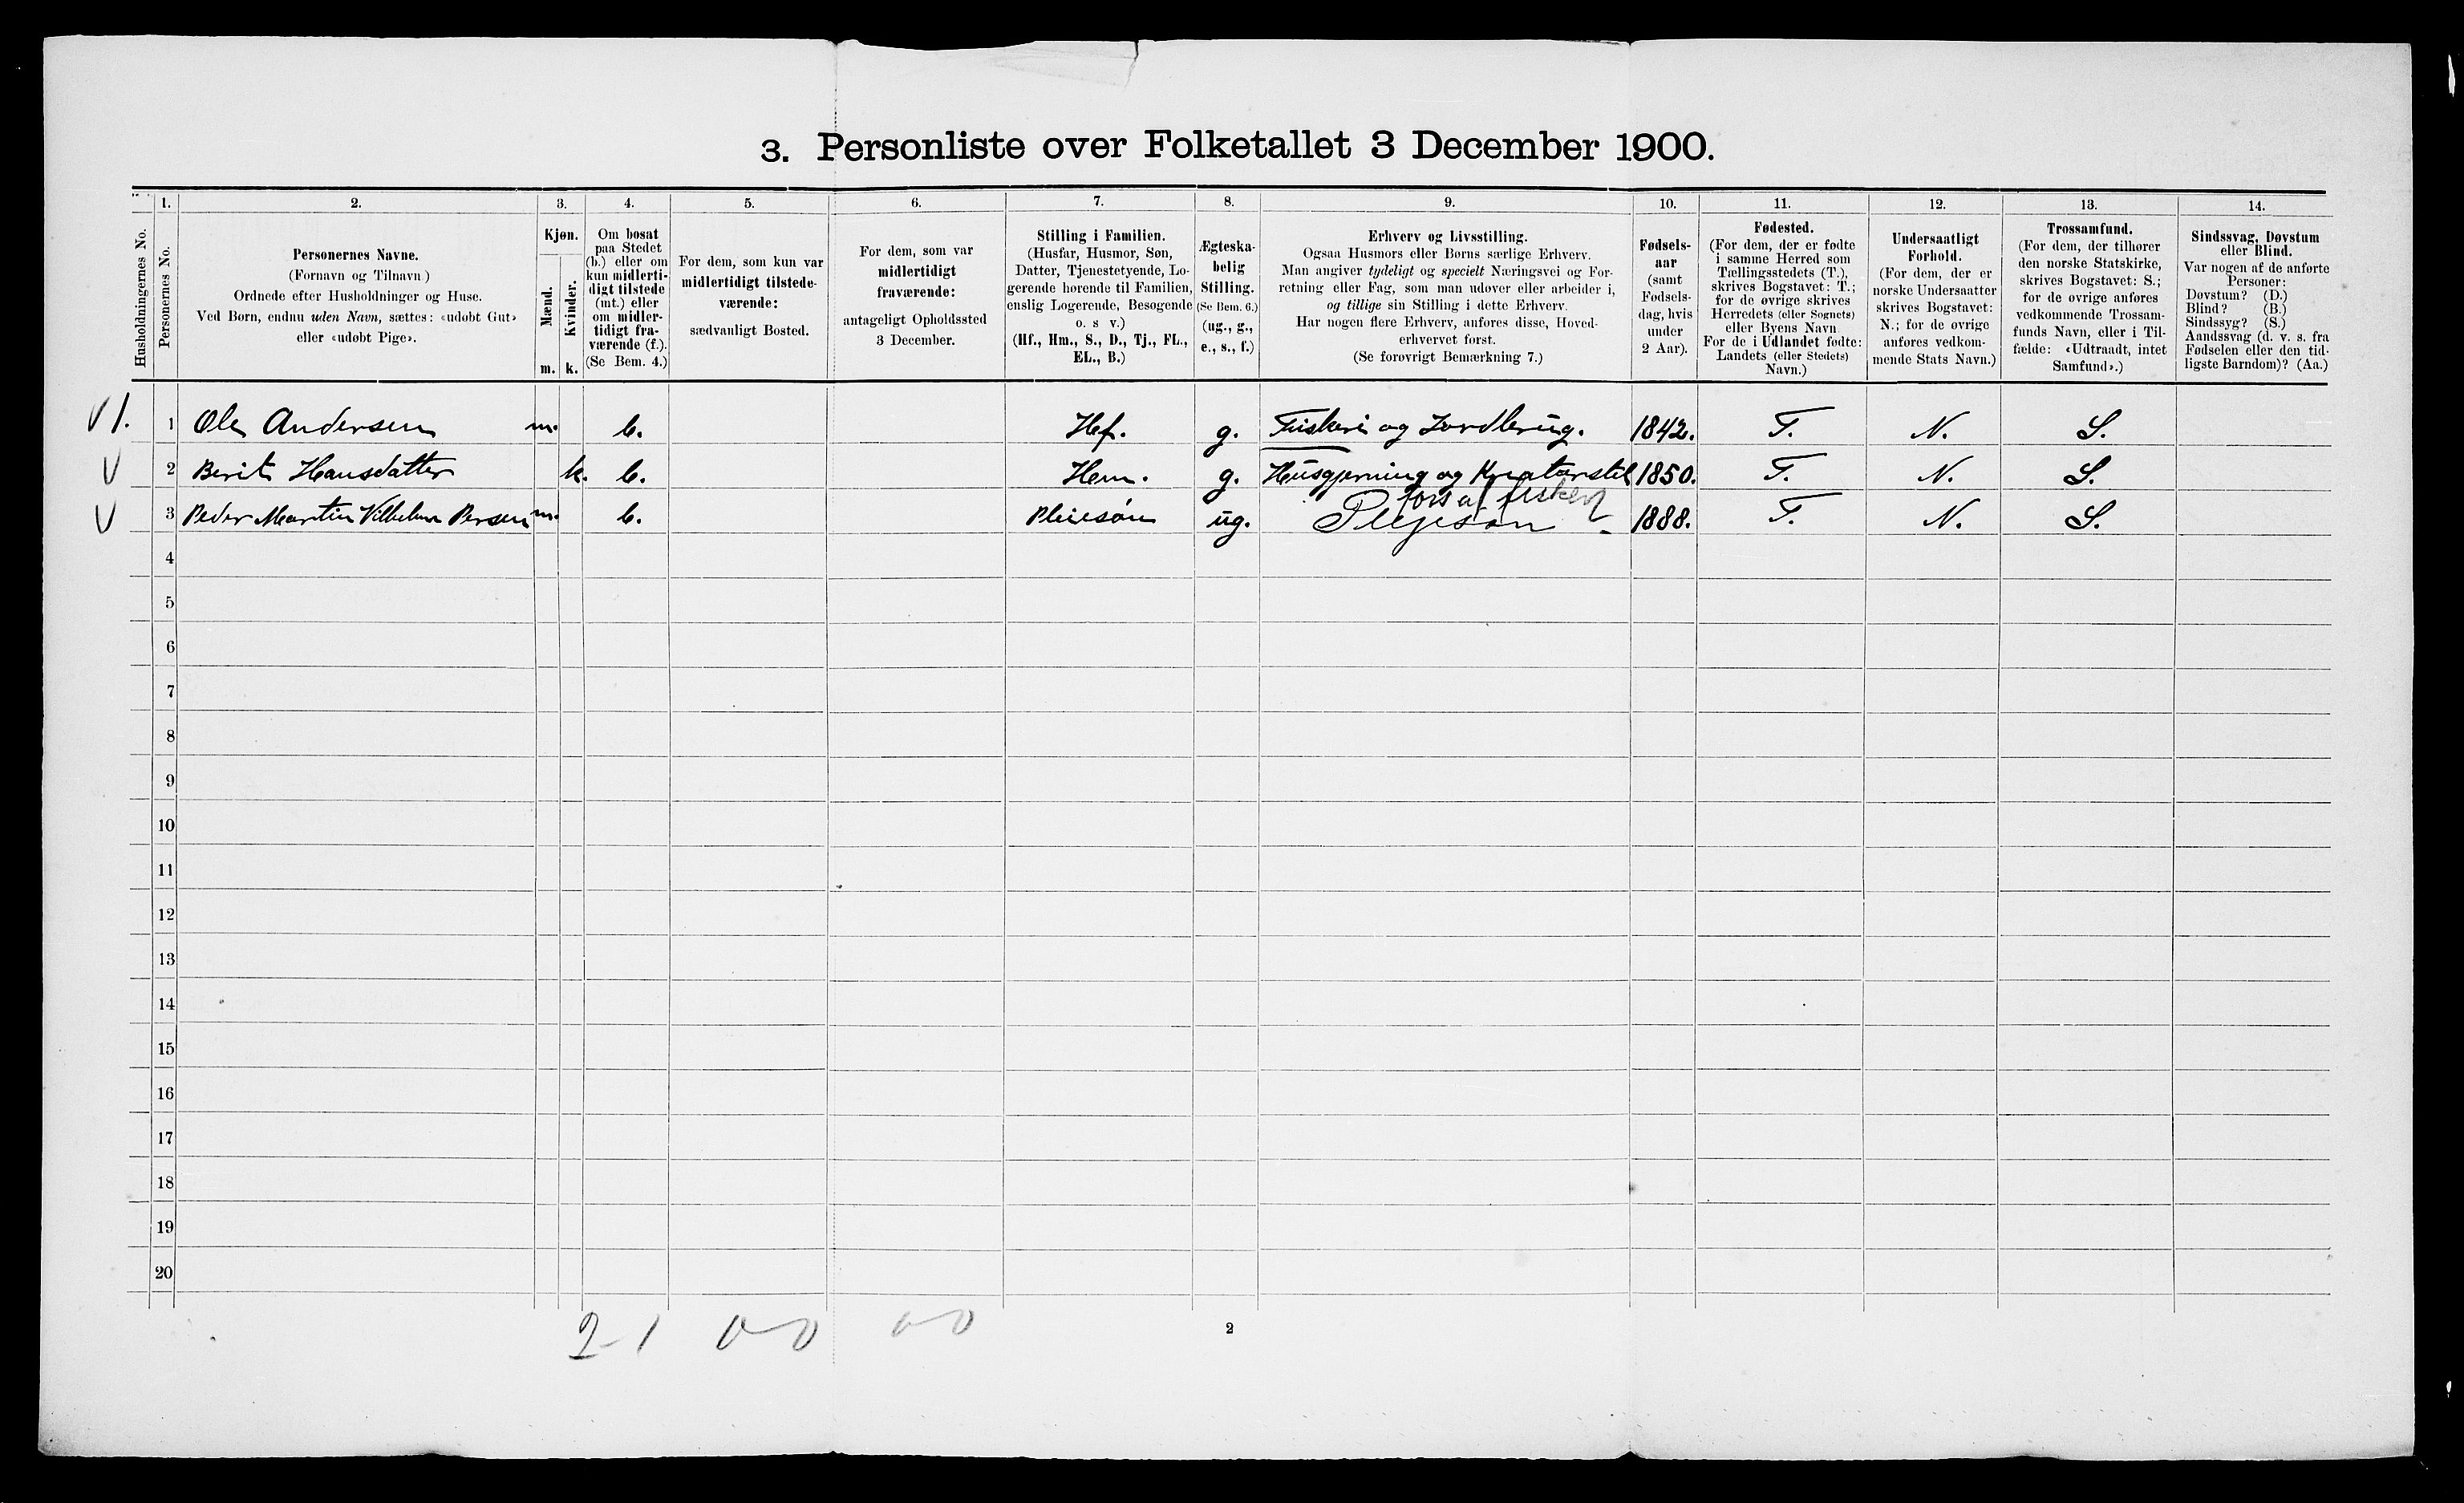 3. Personliste over Folketallet 3 December 1900.
1. 2. 3. 4. 5. 6. 7. 8. 9. 10. 11. 12. 13. 14.
Husholdningernes No.
Personernes No.
Personernes Navne.
(Fornavn og Tilnavn)
Ordnede efter Husholdninger og Huse.
Ved Børn, endnu uden Navn, sættes: «udøbt Gut»
eller «udøbt Pige».
Kjøn.
Mænd.
Kvinder.
m. k.
Om bosat
paa Stedet
(b.) eller om
kun midlerti-
digt tilstede
(mt.) eller
om midler-
tidigt fra-
værende (f.).
(Se Bem. 4.)
For dem, som kun var
midlertidigt tilstede-
værende:
sædvanligt Bosted.
For dem, som var
midlertidigt
fraværende:
antageligt Opholdssted
3 December.
Stilling i Familien.
(Husfar, Husmor, Søn,
Datter, Tjenestetyende, Lo-
gerende hørende til Familien,
enslig Logerende, Besøgende
o. s v.)
(Hf., Hm., S., D., Tj., FL.,
EL., B.)
Ægteska-
belig
Stilling.
(Se Bem. 6.)
(ug., g.,
e., s., f.)
Erhverv og Livsstilling.
Ogsaa Husmors eller Børns særlige Erhverv.
Man angiver tydeligt og specielt Næringsvei og For-
retning eller Fag, som man udøver eller arbeider i,
og tillige sin Stilling i dette Erhverv.
Har nogen flere Erhverv, anføres disse, Hoved-
erhvervet først.
(Se forøvrigt Bemærkning 7.)
Fødsels-
aar
(samt
Fødsels-
dag, hvis
under
2 Aar).
Fødested.
(For dem, der er fødte
i samme Herred som
Tællingsstedets (T.),
skrives Bogstavet: T.;
for de øvrige skrives
Herredets (eller Sognets)
eller Byens Navn
For de i Udlandet fødte:
Landets (eller Stedets)
Navn.)
Undersaatligt
Forhold.
(For dem, der er
norske Undersaatter
skrives Bogstavet:
N.; for de øvrige
anføres vedkom-
mende Stats Navn.)
Trossamfund.
(For dem, der tilhører
den norske Statskirke,
skrives Bogstavet: S.;
for de øvrige anføres
vedkommende Trossam-
funds Navn, eller i Til-
fælde: «Udtraadt, intet
Samfund».)
Sindssvag, Døvstum
eller Blind.
Var nogen af de anførte
Personer:
Døvstum? (D.)
Blind? (B.)
Sindssyg? (S.)
Aandssvag (d. v. s. fra
Fødselen eller den tid-
ligste Barndom)? (Aa.)
V 1. 1 Ole Andersen m. b. Hef. g. Fiskeri og Jordbrug. 1842. T. N. S.
V 2 Berit Hansdatter k. b. Hem. g. Husgjerning og Kreaturstel 1850. T. N. S.
fors af fisker
V 3 Peder Martin Vilhelm Persen m. b. Pleiesøn ug. Plejesøn 1888. T. N. S.
4
5
6
7
8
9
10
11
12
13
14
15
16
17
18
19
20
2-1 0-0 0-0 2